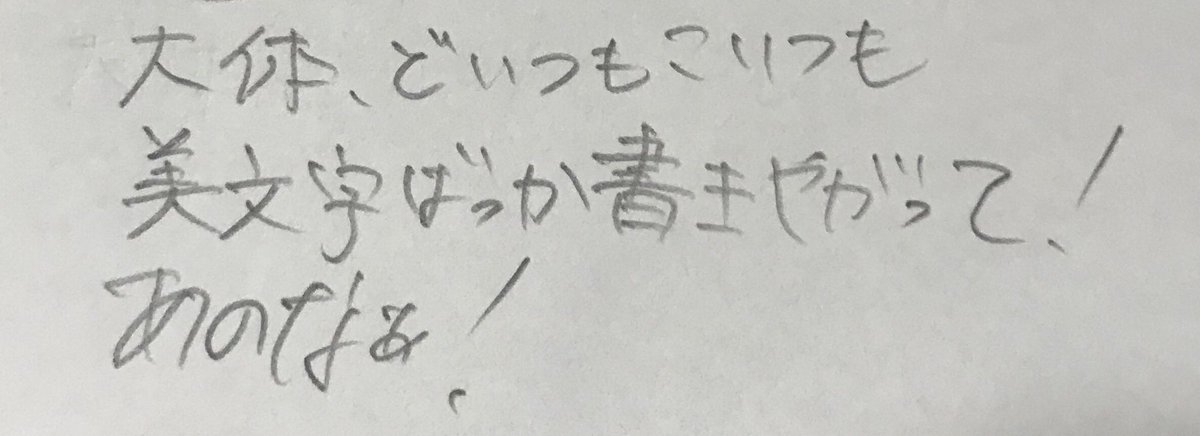 大体、どいつもこいつも
美文字ばっか書きやがって!
あのなぁ!